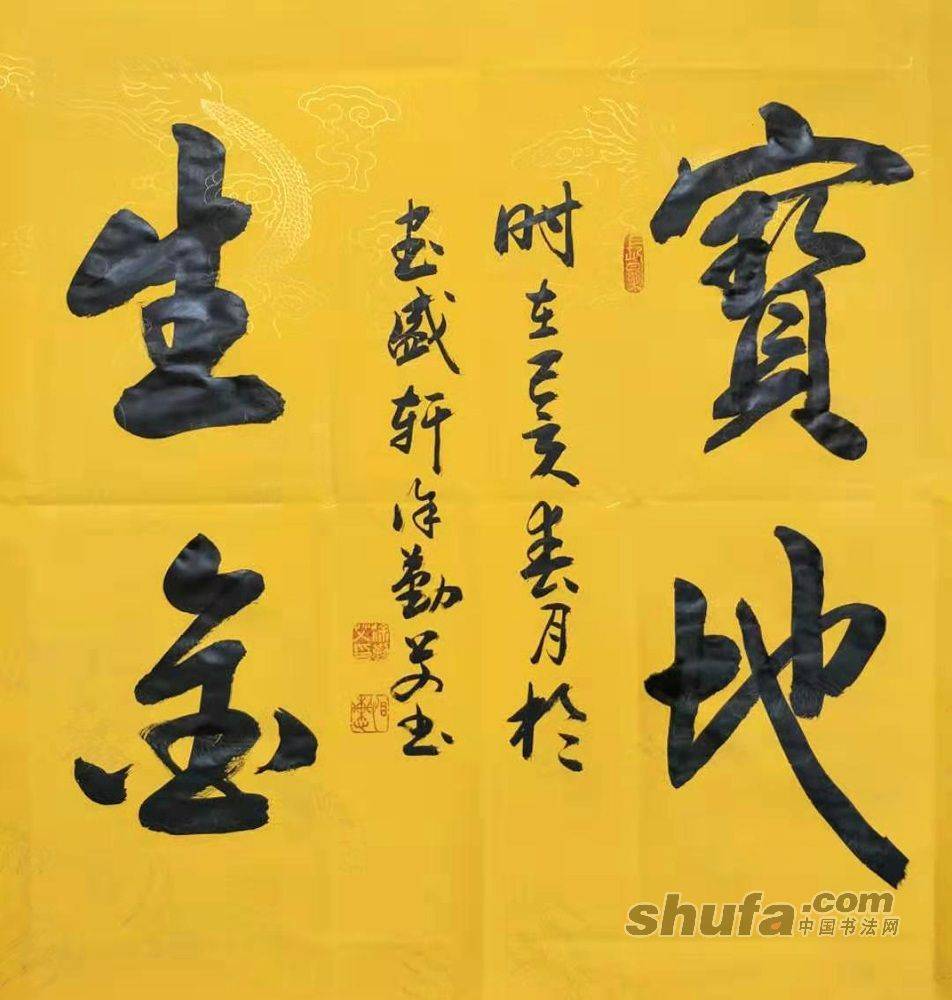 寶地
时在己亥春月於
盛轩徐勤书
生金
shufa.com
中国书法网